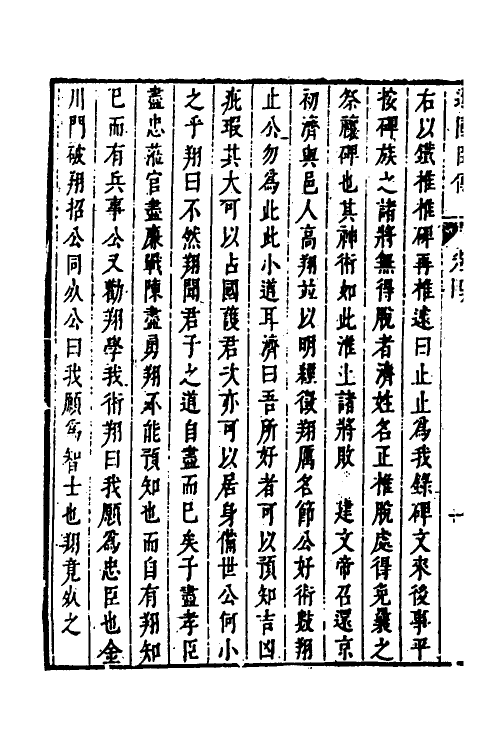 右以鐵椎椎碑再椎遽曰止止為我錄碑文來後事平
按碑族之諸將無得脫者濟姓名正椎脫處得免曩之
祭禳碑也其神術如此淮上諸將敗　建文帝召還京
初濟與邑人高翔並以明經徵翔厲名節公好術數翔
止公勿為此此小道耳濟曰吾所好者可以預知吉凶
疵瑕其大可以占國護君次亦可以居身備世公何小
之乎翔曰不然翔聞君子之道自盡而已矣子盡孝臣
盡忠涖官盡廉戰陳盡勇翔不能預知也而自有翔知
已而有兵事公又勸翔學我術翔曰我願為忠臣也金
川門破翔招公同死公曰我願為智士也翔竟死之